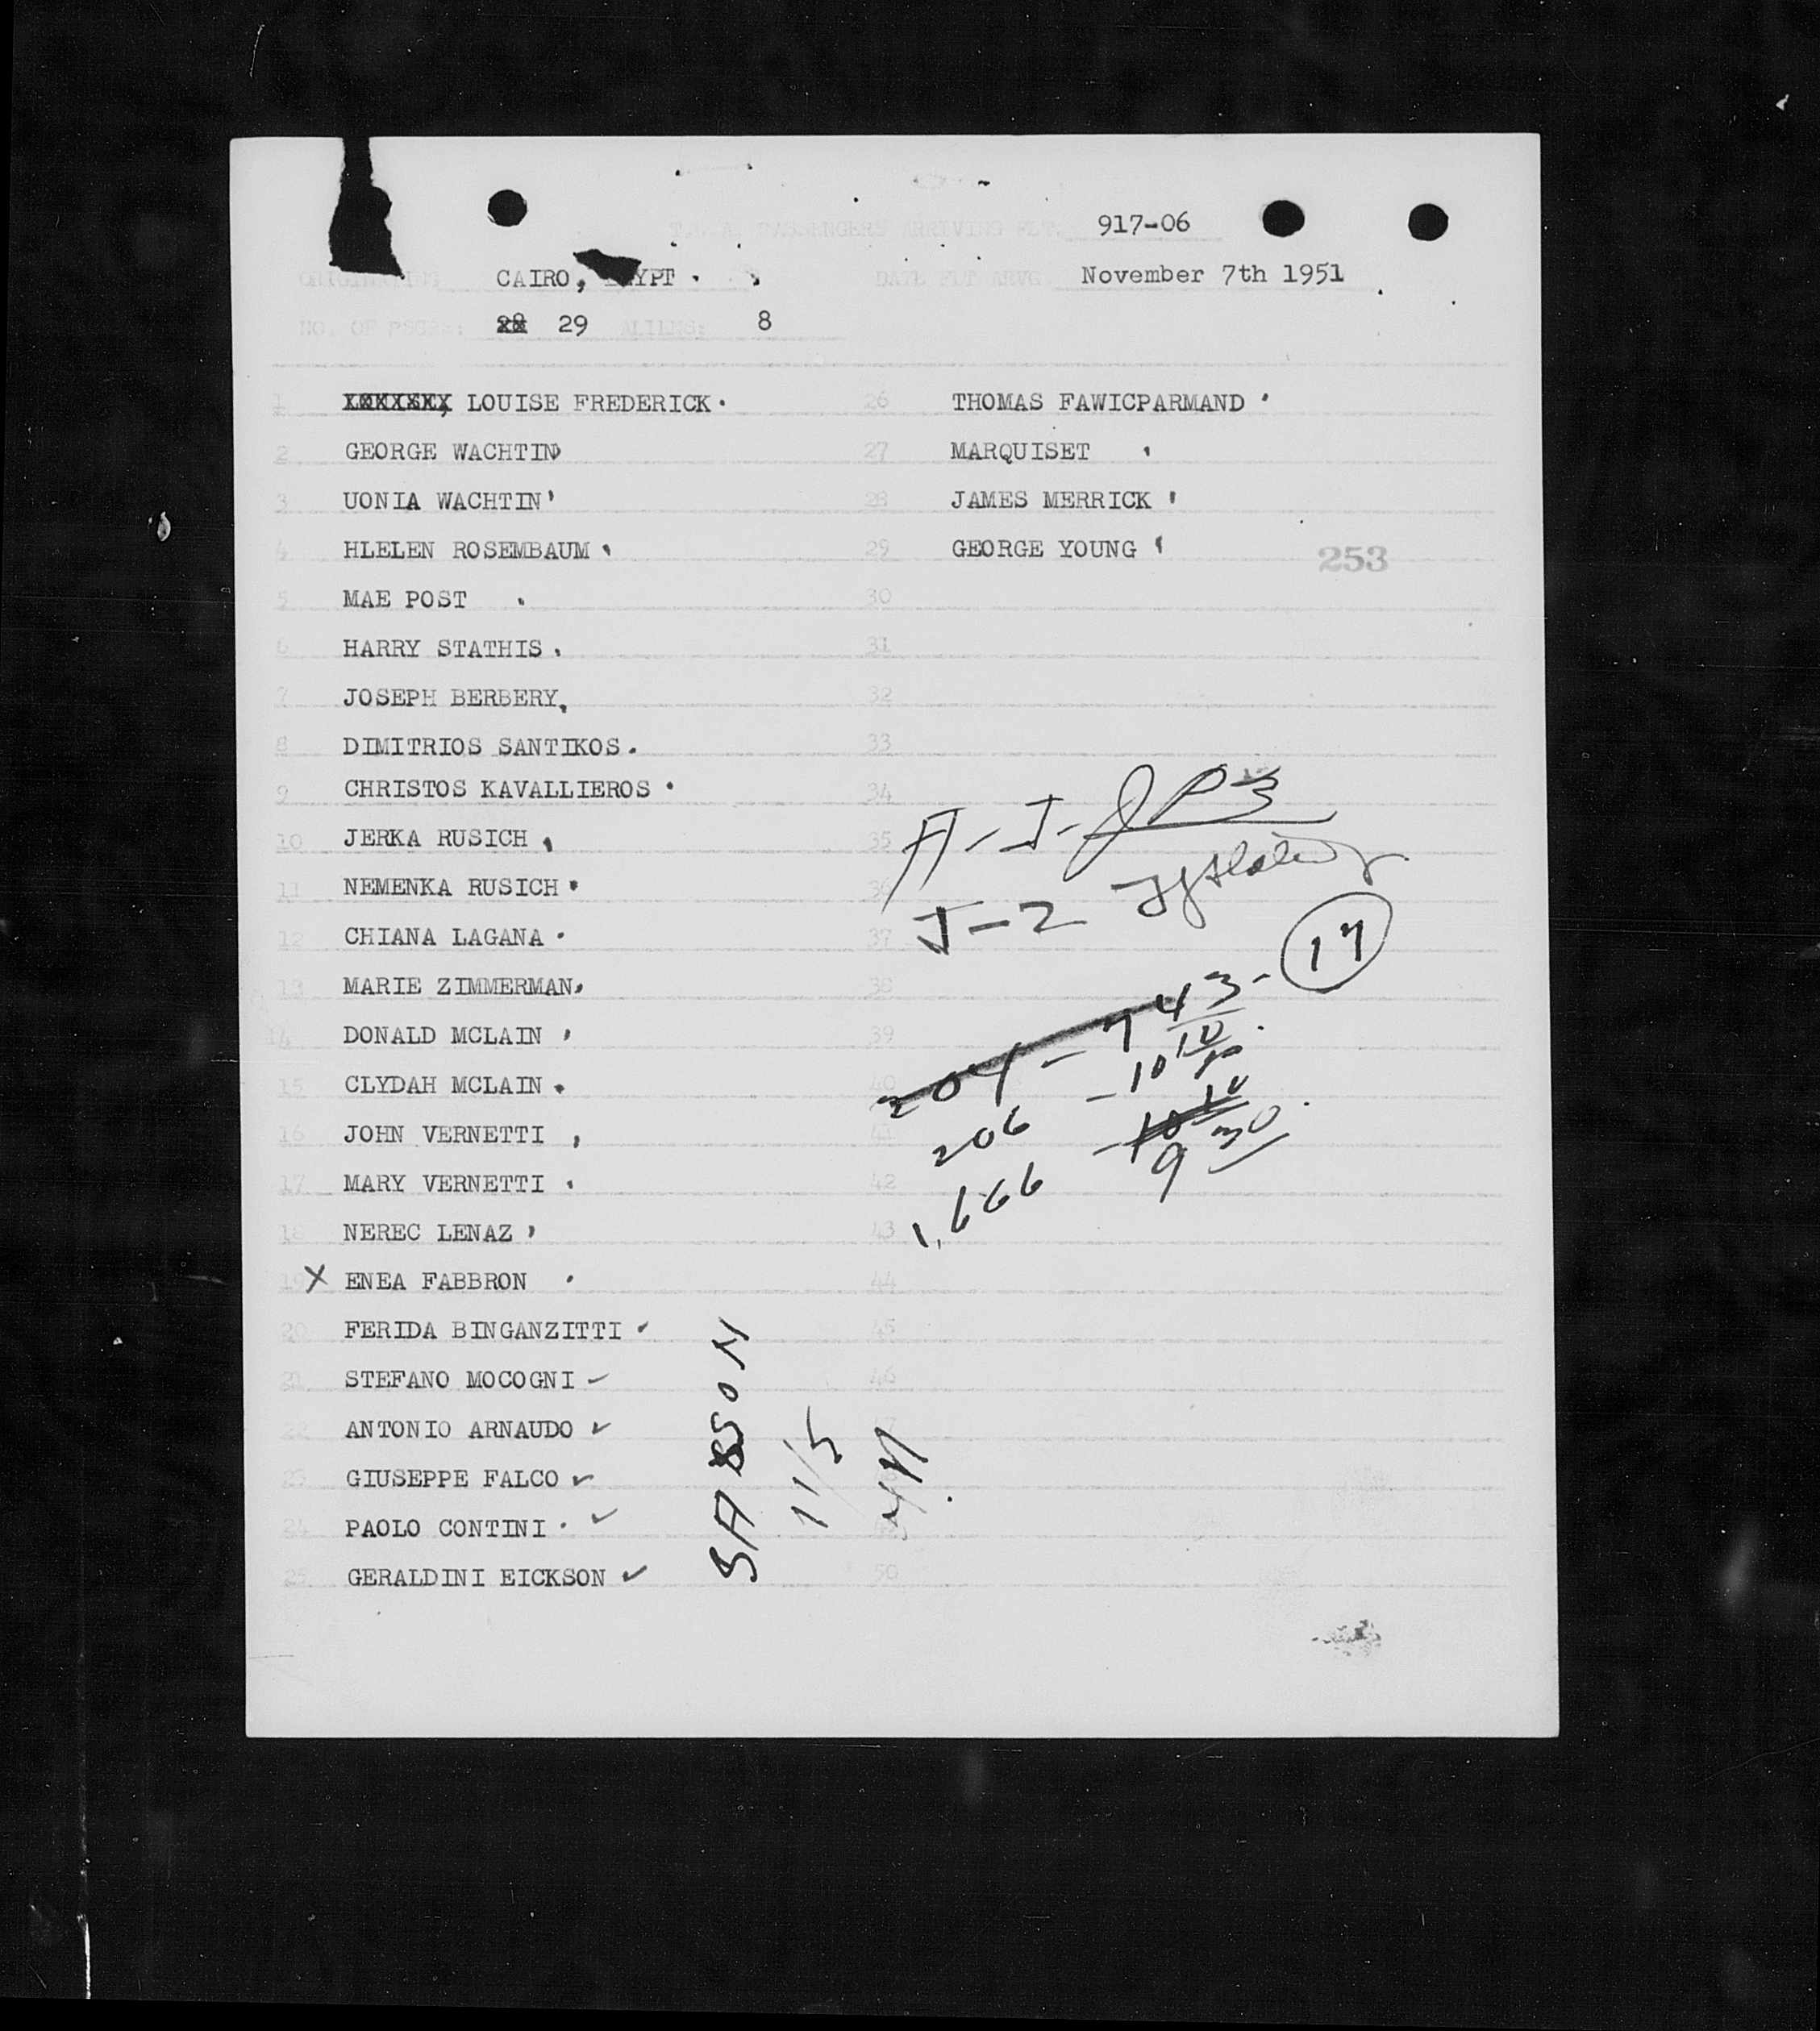 T.W.A. PASSENGERS ARRIVING FLT. 917-06
ORIGINATING CAIRO, YPT. DATE FLT ARVG November 7th 1951
NO. OF PSGRS: 28 29 ALIENS: 8
1 LOUISE FREDERICK
2 GEORGE WACHTIN
3 UONIA WACHTIN
4 HLELEN ROSEMBAUM
5 MAE POST
6 HARRY STATHIS
7 JOSEPH BERBERY
8 DIMITRIOS SANTIKOS
9 CHRISTOS KAVALLIEROS
10 JERKA RUSICH
11 NEMENKA RUSICH
12 CHIANA LAGANA
13 MARIE ZIMMERMAN
14 DONALD MCLAIN
15 CLYDAH MCLAIN
16 JOHN VERNETTI
17 MARY VERNETTI
18 NEREC LENAZ
19 X ENEA FABBRON
20 FERIDA BINGANZITTI
21 STEFANO MOCOGNI
22 ANTONIO ARNAUDO
23 GIUSEPPE FALCO
24 PAOLO CONTINI
25 GERALDINI EICKSON
26 THOMAS FAWICPARMAND
27 MARQUISET
28 JAMES MERRICK
29 GEORGE YOUNG
253
30
31
32
33
34
35
36
37
38
39
40
41
42
43
44
45
46
47
48
49
50
J-2
17
204 - 743 -
206 - 10 10
1,666 - 10 10
9 30
11/5